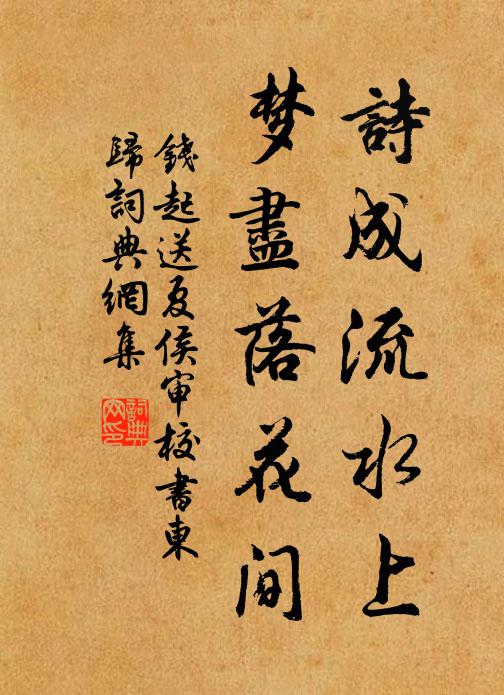 詩成流水上
梦盡落花间
錢起送夏侯审校書東
歸詞典網集
詞典网印